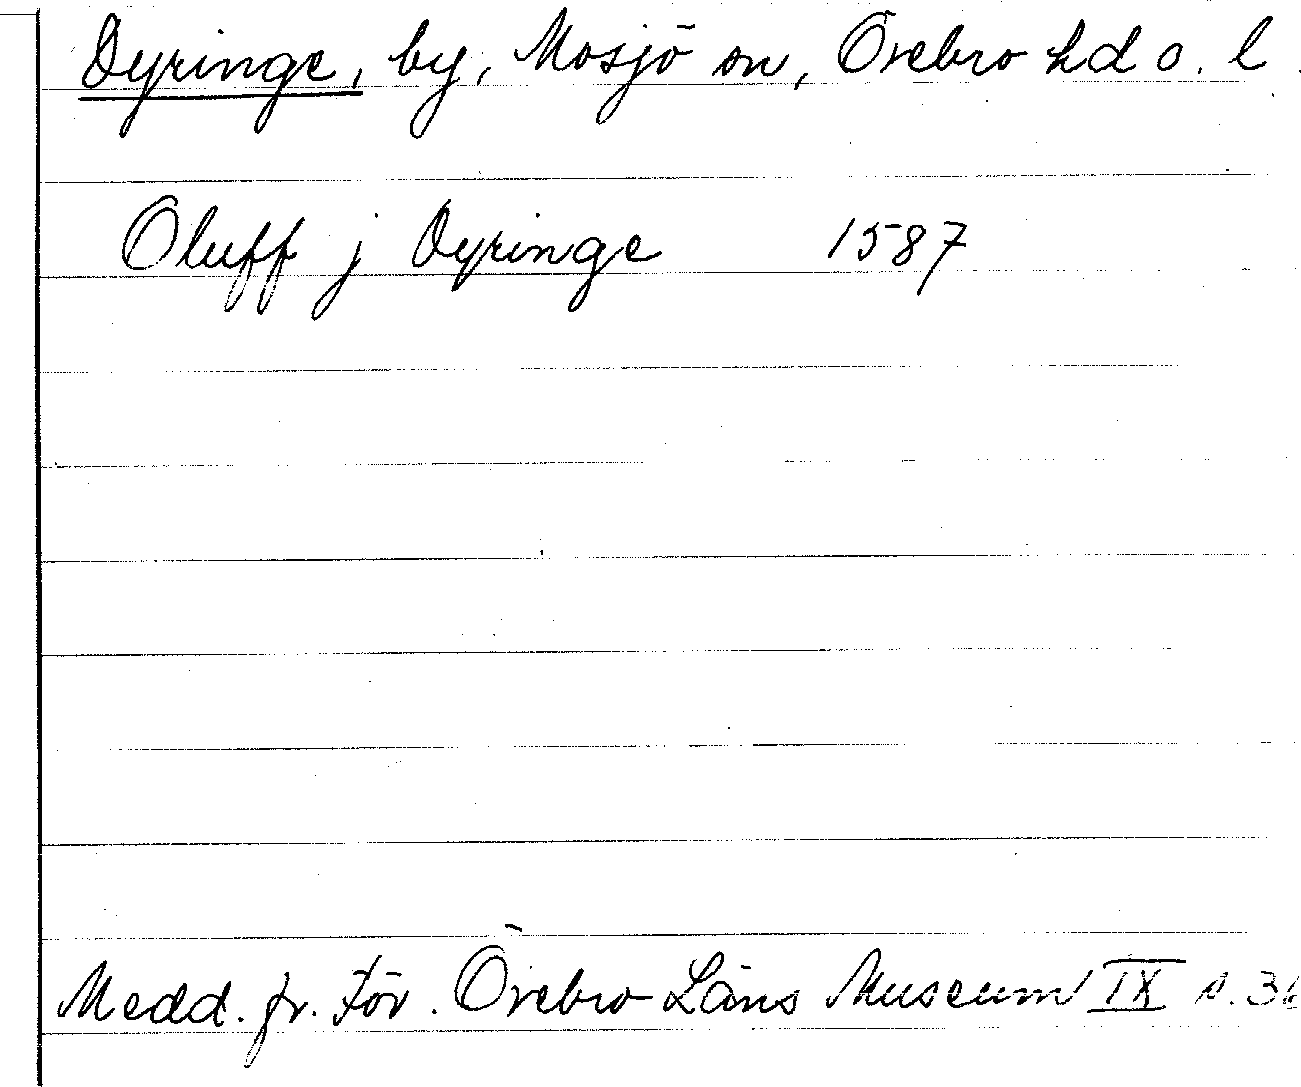 Dyringe, by, Mosjö sn, Örebro hd o. l.
Oluff j Dyringe 1587
Medd. fr. För. Örebro Läns Museum IX s. 36